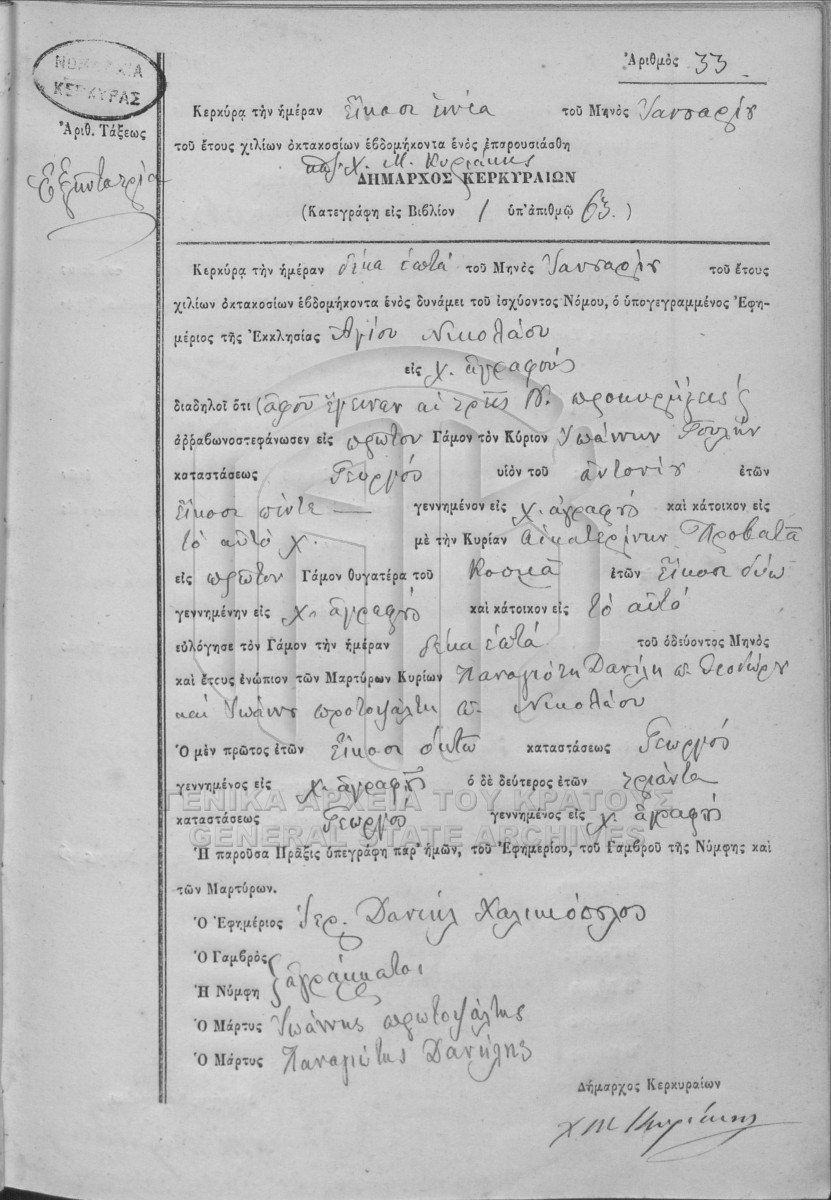 ΝΟΜΑΡΧΙΑ
ΚΕΡΚΥΡΑΣ
Ἀριθμὸς 33
Ἀριθ. Τάξεως
Κερκύρᾳ τὴν ἡμέραν Εἴκοσι ἐνέα τοῦ Μηνὸς Ἰανουαρίου
τοῦ ἔτους χιλίων ὀκτακοσίων ἑβδομήκοντα ἑνὸς ἐπαρουσιάσθη
Χ. Μ. Κυριάκης
ΔΗΜΑΡΧΟΣ ΚΕΡΚΥΡΑΙΩΝ
(Κατεγράφη εἰς Βιβλίον 1 ὑπ' ἀριθμῷ 63.)
Κερκύρᾳ τὴν ἡμέραν δέκα ἑπτά τοῦ Μηνὸς Ἰανουαρίου τοῦ ἔτους
χιλίων ὀκτακοσίων ἑβδομήκοντα ἑνὸς δυνάμει τοῦ ἰσχύοντος Νόμου, ὁ ὑπογεγραμμένος Ἐφη-
μέριος τῆς Ἐκκλησίας Ἁγίου Νικολάου
εἰς χ. ἀγραφούς
διαδηλοῖ ὅτι (ἀφοῦ ἔγειναν αἱ τρεῖς Ν. προκυρήξεις)
ἀρραβωνοστεφάνωσεν εἰς πρῶτον Γάμον τὸν Κύριον Ἰωάννην Γουλήν
καταστάσεως Γεωργοῦ υἱὸν τοῦ ἀντονίου ἐτῶν
εἴκοσι πέντε — γεννημένον εἰς χ. ἀγραφού καὶ κάτοικον εἰς
τὸ αὐτὸ χ. μὲ τὴν Κυρίαν Αἰκατερίνην Προβατᾶ
εἰς πρῶτον Γάμον θυγατέρα τοῦ Κοσμᾶ ἐτῶν εἴκοσι δύω
γεννημένην εἰς χ. ἀγραφού καὶ κάτοικον εἰς τὸ αὐτό
εὐλόγησε τὸν Γάμον τὴν ἡμέραν δέκα ἑπτά τοῦ ὁδεύοντος Μηνὸς
καὶ ἔτους ἐνώπιον τῶν Μαρτύρων Κυρίων Παναγιότη Δανίλη π. Θεοδώρου
καὶ Ἰωάννου πρωτοψάλτη π. Νικολάου
Ὁ μὲν πρῶτος ἐτῶν εἴκοσι ὀκτώ καταστάσεως Γεωργού
γεννημένος εἰς χ. ἀγραφού ὁ δὲ δεύτερος ἐτῶν τριάντα
καταστάσεως Γεωργου γεννημένος εἰς χ. ἀγραφού
ΓΕΝΙΚΑ ΑΡΧΕΙΑ ΤΟΥ ΚΡΑΤΟΥΣ
GENERAL STATE ARCHIVES
Ἡ παροῦσα Πρᾶξις ὑπεγράφη παρ' ἡμῶν, τοῦ Ἐφημερίου, τοῦ Γαμβροῦ τῆς Νύμφης καὶ
τῶν Μαρτύρων.
Ὁ Ἐφημέριος Ἱερ. Δανιήλ Χαλικιόπουλος
Ὁ Γαμβρὸς
ἀγράμματοι
Ἡ Νύμφη
Ὁ Μάρτυς Ἰωάννης πρωτοψάλτης
Ὁ Μάρτυς Παναγιότης Δανήλης
Δήμαρχος Κερκυραίων
Χ Μ Κυριάκης